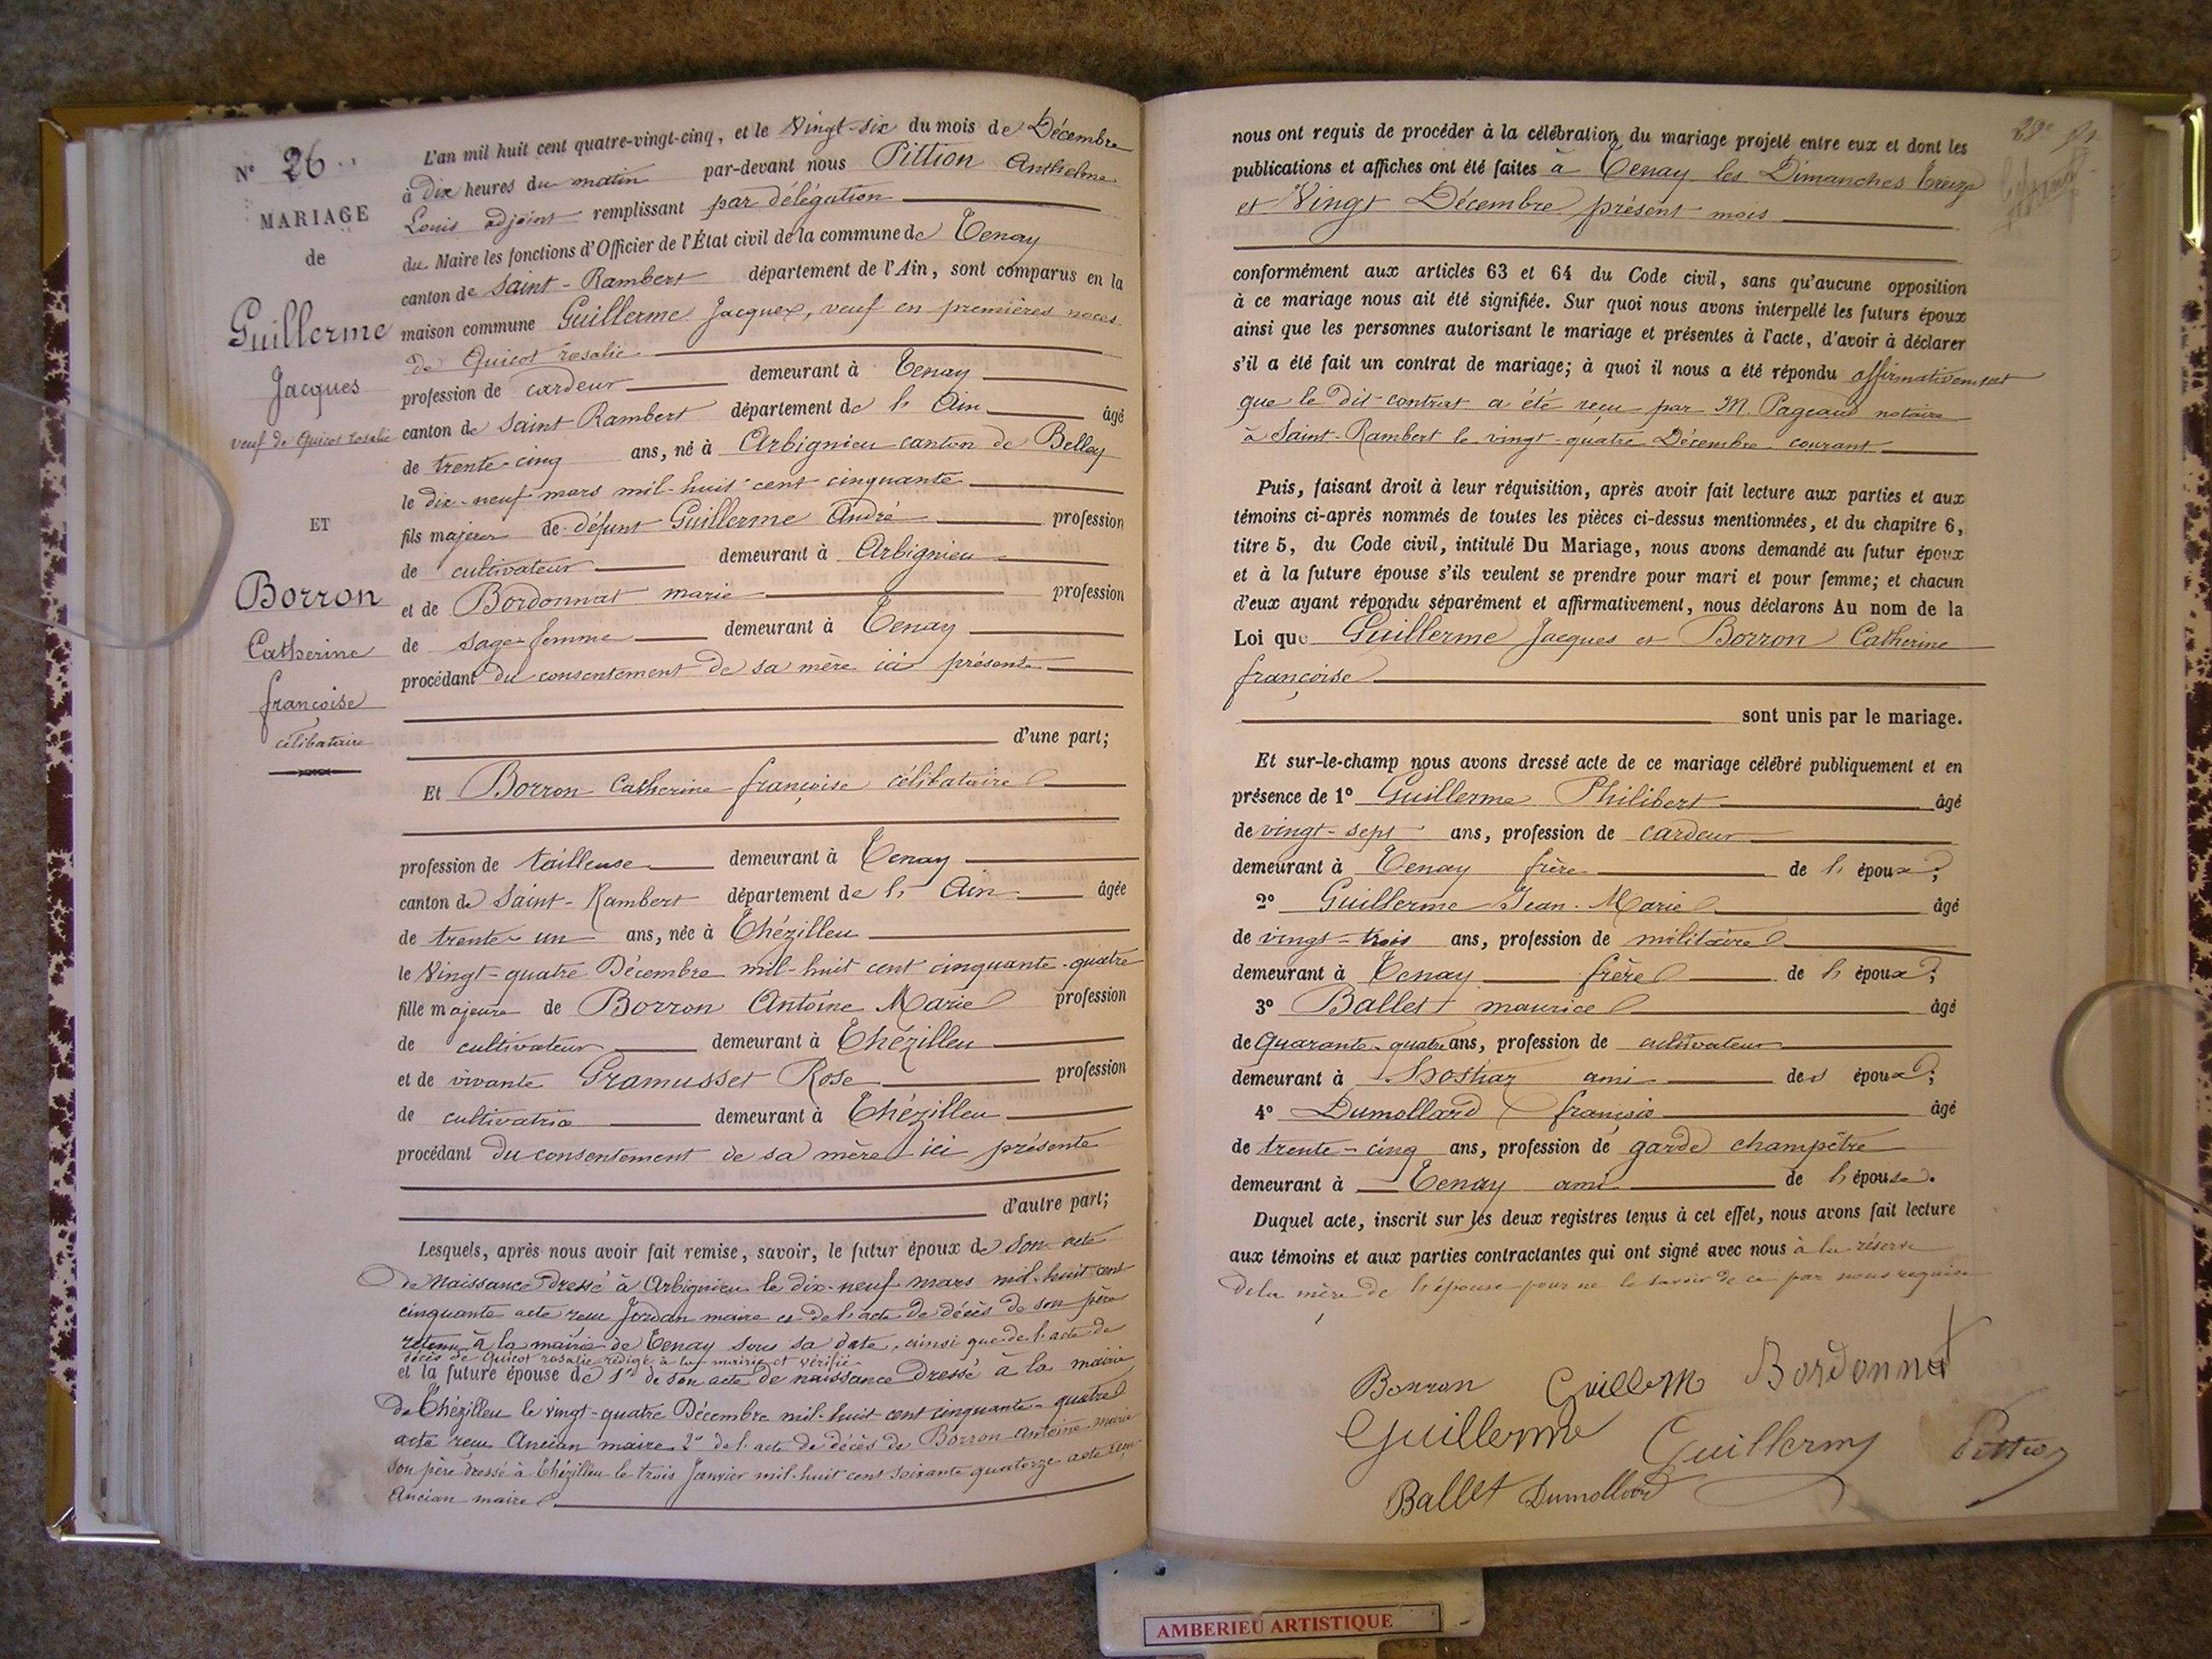 N° 26
MARIAGE
de
Guillerme
Jacques
veuf de Quicot rosalie
ET
Borron
Catherine
françoise
célibataire
L'an mil huit cent quatre-vingt-cinq, et le Vingt-six du mois de Décembre
à dix heures du matin par-devant nous Pittion Anthelme
Louis adjoint remplissant par délégation
du Maire les fonctions d'Officier de l'État civil de la commune de Tenay
canton de Saint-Rambert département de l'Ain, sont comparus en la
maison commune Guillerme Jacques, veuf en premières noces
de Quicot rosalie
profession de cardeur demeurant à Tenay
canton de Saint Rambert département de l'Ain âgé
de trente-cinq ans, né à Arbignieu canton de Belley
le dix-neuf mars mil-huit cent cinquante
fils majeur de défunt Guillerme André profession
de cultivateur demeurant à Arbignieu
et de Bordonnat marie profession
de sage-femme demeurant à Tenay
procédant du consentement de sa mère ici présente
d'une part;
Et Borron Catherine françoise célibataire
profession de tailleuse demeurant à Tenay
canton de Saint-Rambert département de l'Ain âgée
de trente-un ans, née à Thézilleu
le Vingt-quatre Décembre mil-huit cent cinquante-quatre
fille majeure de Borron Antoine Marie profession
de cultivateur demeurant à Thézilleu
et de vivante Gramusset Rose profession
de cultivatrice demeurant à Thézilleu
procédant du consentement de sa mère ici présente
d'autre part;
Lesquels, après nous avoir fait remise, savoir, le futur époux de son acte
de Naissance dressé à Arbignieu le dix-neuf mars mil-huit cent
cinquante acte reçu Jordan maire et de l'acte de décès de son père
retenu à la mairie de Tenay sous sa date, ainsi que de l'acte de
décès de Quicot rosalie rédigé à la mairie et vérifié
et la future épouse de 1° de son acte de naissance dressé à la mairie
de Thézilleu le vingt-quatre Décembre mil-huit cent cinquante-quatre
acte reçu Ancian maire 2° de l'acte de décès de Borron Antoine marie
son père dressé à Thézilleu le trois Janvier mil-huit cent soixante quatorze acte reçu
Ancian maire
nous ont requis de procéder à la célébration du mariage projeté entre eux et dont les
publications et affiches ont été faites à Tenay les Dimanches treize
et Vingt Décembre présent mois
conformément aux articles 63 et 64 du Code civil, sans qu'aucune opposition
à ce mariage nous ait été signifiée. Sur quoi nous avons interpellé les futurs époux
ainsi que les personnes autorisant le mariage et présentes à l'acte, d'avoir à déclarer
s'il a été fait un contrat de mariage; à quoi il nous a été répondu affirmativement
que le dit contrat a été reçu par M. Pageaud notaire
à Saint-Rambert le vingt-quatre Décembre courant
Puis, faisant droit à leur réquisition, après avoir fait lecture aux parties et aux
témoins ci-après nommés de toutes les pièces ci-dessus mentionnées, et du chapitre 6,
titre 5, du Code civil, intitulé Du Mariage, nous avons demandé au futur époux
et à la future épouse s'ils veulent se prendre pour mari et pour femme; et chacun
d'eux ayant répondu séparément et affirmativement, nous déclarons Au nom de la
Loi que Guillerme Jacques et Borron Catherine
françoise
sont unis par le mariage.
Et sur-le-champ nous avons dressé acte de ce mariage célébré publiquement et en
présence de 1° Guillerme Philibert âgé
de vingt-sept ans, profession de cardeur
demeurant à Tenay frère de l'époux;
2° Guillerme Jean-Marie âgé
de vingt-trois ans, profession de militaire
demeurant à Tenay frère de l'époux;
3° Ballet maurice âgé
de Quarante-quatre ans, profession de cultivateur
demeurant à Hostiaz ami des époux;
4° Dumollard françois âgé
de trente-cinq ans, profession de garde champêtre
demeurant à Tenay ami de l'épouse.
Duquel acte, inscrit sur les deux registres tenus à cet effet, nous avons fait lecture
aux témoins et aux parties contractantes qui ont signé avec nous à la réserve
de la mère de l'épouse pour ne le savoir de ce par nous requise
Borron Guillerm Bordonnat
Guillerme Guillerme Pittion
Ballet Dumollard
AMBERIEU ARTISTIQUE